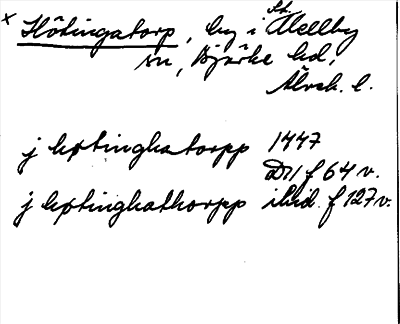 x Hötingatorp, by i St. Mellby
sn, Bjärke hd,
Älvsb. l.
j høtinghatorpp 1447
D11 f 64 v.
j høtinghathorpp ibid. f 127 v.